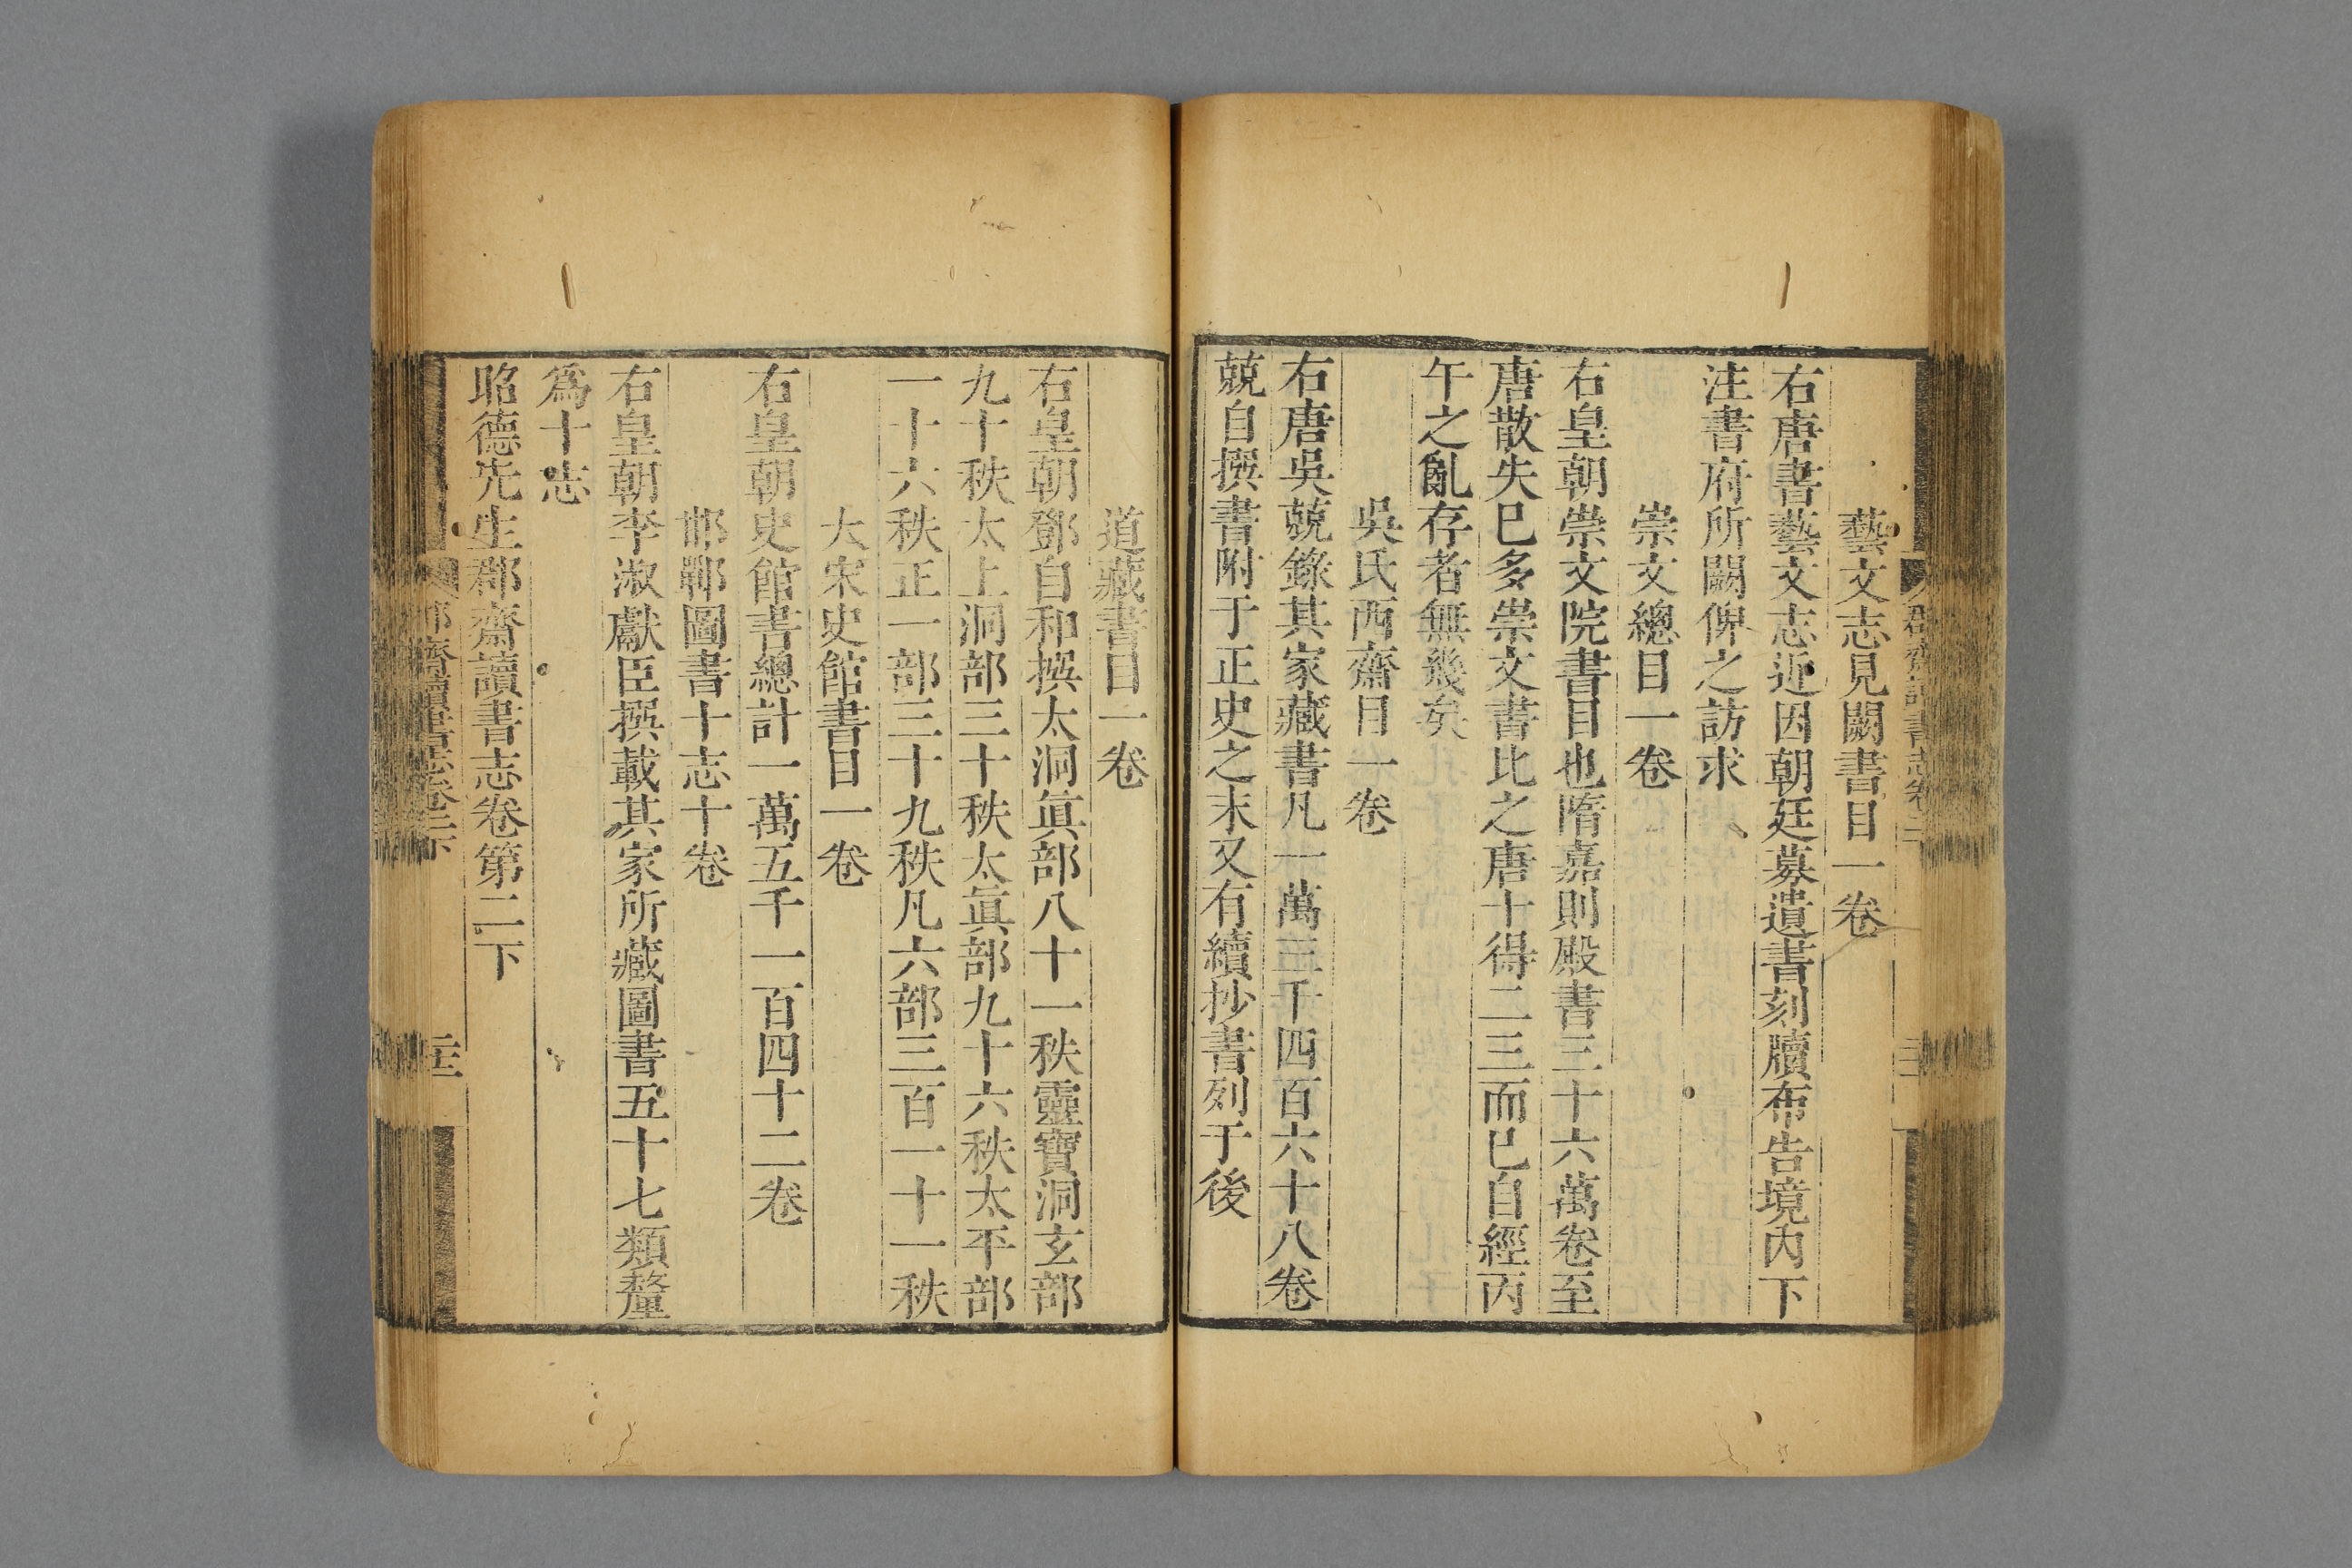 藝文志見闕書目一卷
右唐書藝文志近因朝廷募遺書刻牘布告境內下
注書府所闕俾之訪求
崇文總目一卷
右皇朝崇文院書目也隋嘉則殿書三十六萬卷至
唐散失已多崇文書比之唐十得二三而已自經丙
午之亂存者無幾矣
吳氏西齋目一卷
右唐吳兢錄其家藏書凡一萬三千四百六十八卷
兢自撰書附于正史之末又有續抄書列于後
道藏書目一卷
右皇朝鄧自和撰太洞眞部八十一秩靈寶洞玄部
九十秩太上洞部三十秩太眞部九十六秩太平部
一十六秩正一部三十九秩凡六部三百一十一秩
大宋史館書目一卷
右皇朝史館書總計一萬五千一百四十二卷
邯鄲圖書十志十卷
右皇朝李淑獻臣撰載其家所藏圖書五十七類釐
爲十志
昭德先生郡齋讀書志卷第二下